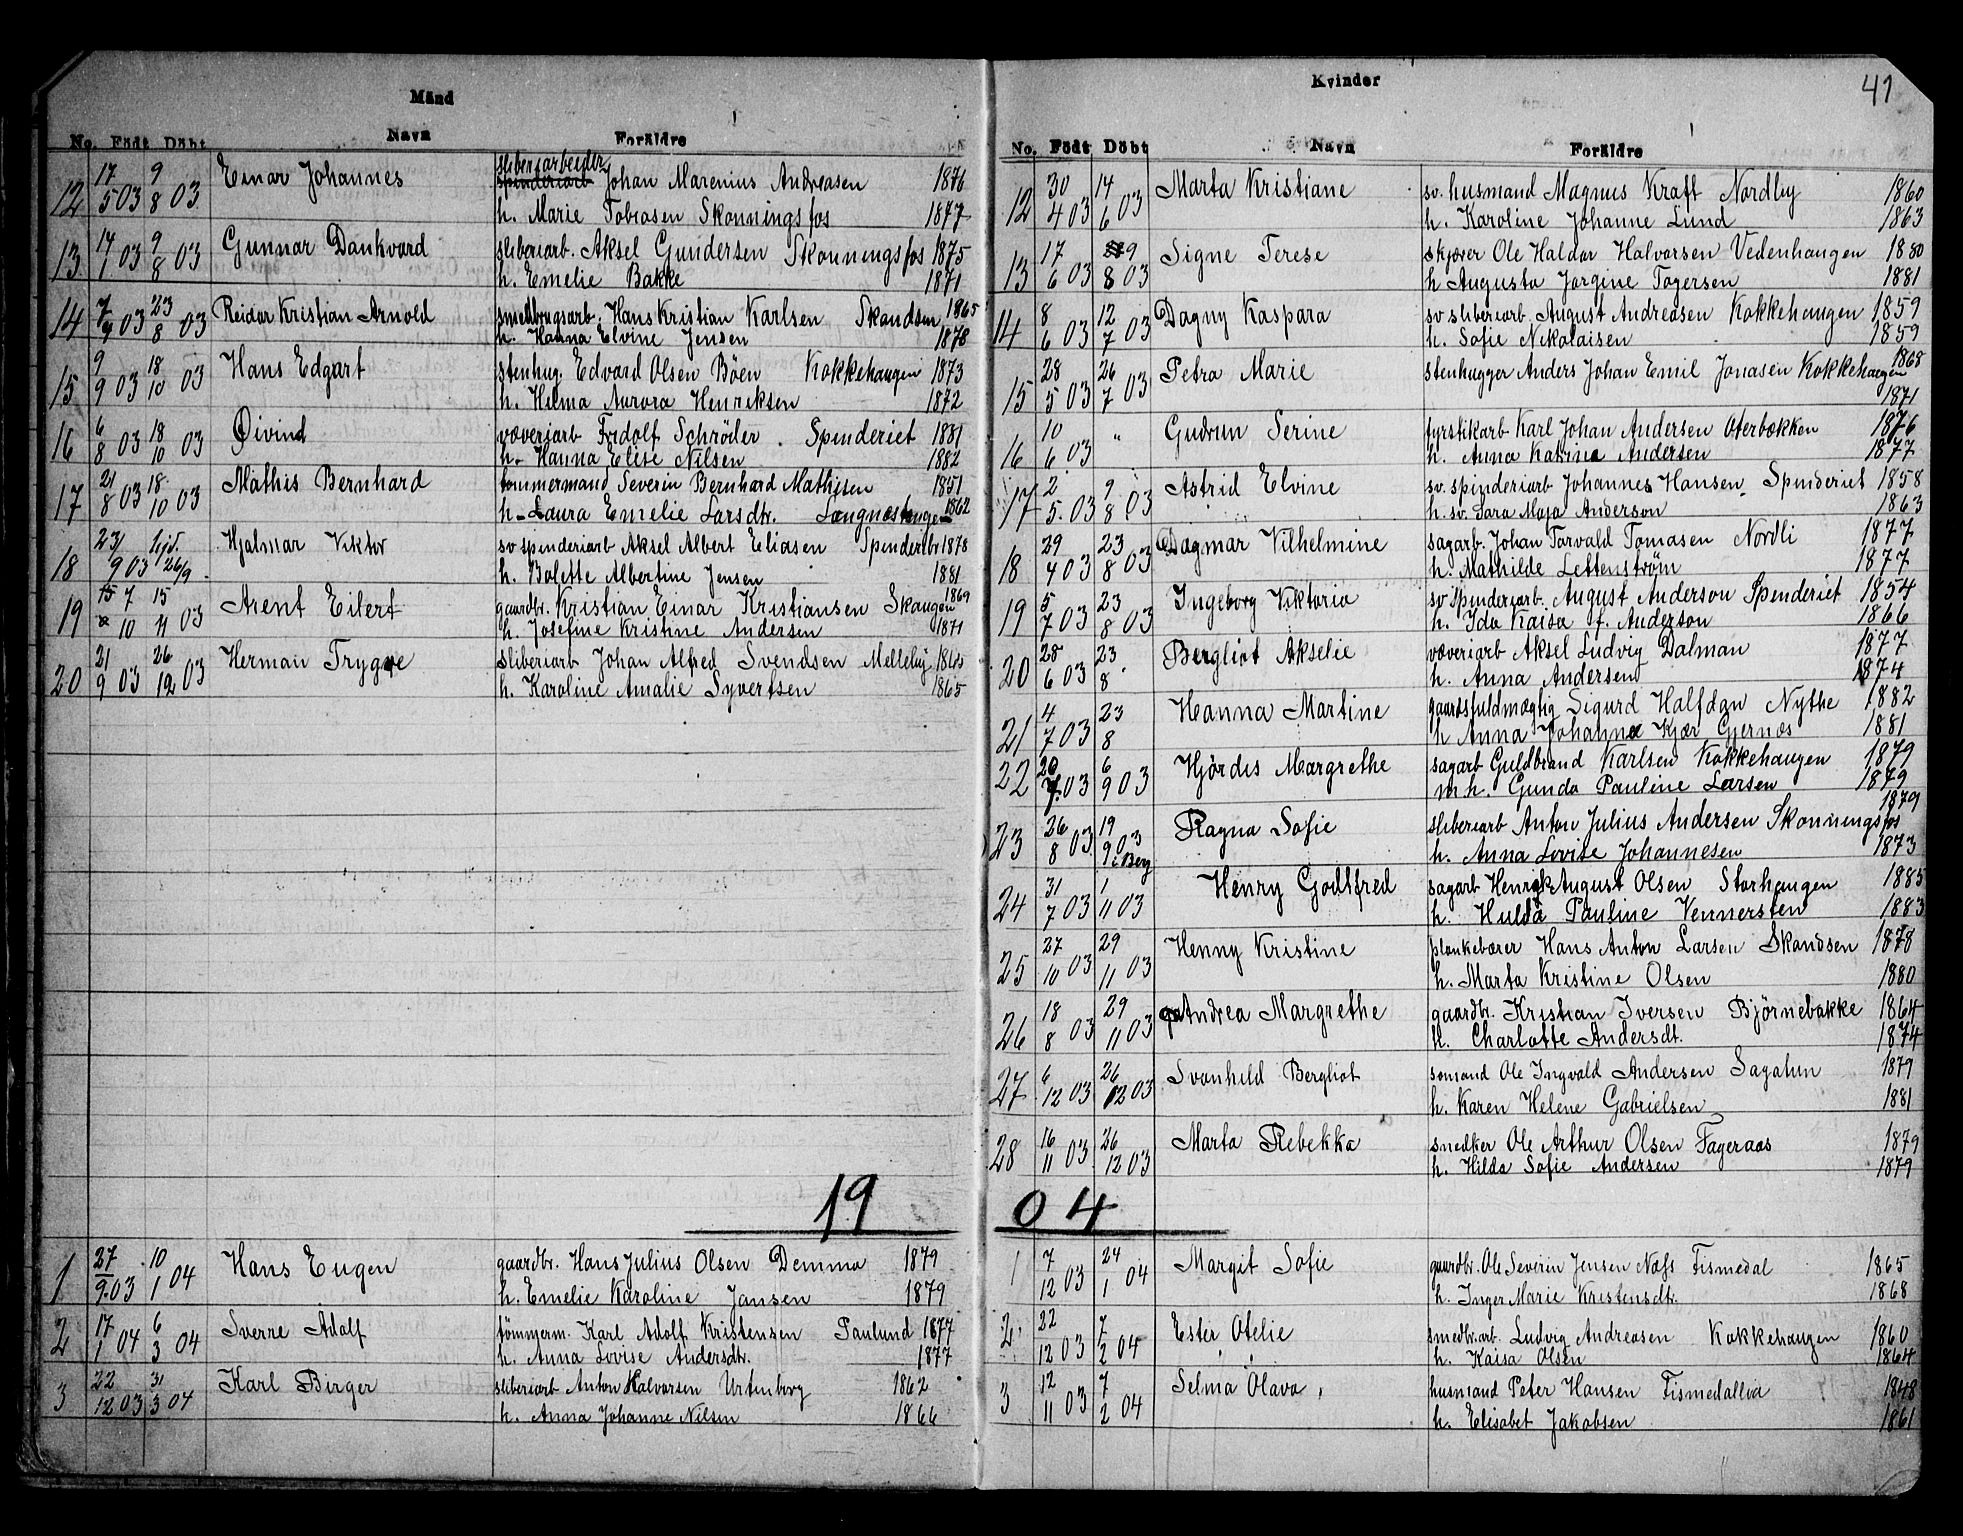 Mänd
No. Födt Döbt Navn Foräldre
12 17/5 03 9/8 03. Einar Johannes sliberiarbeider spinderiarb Johan Marenius Andreasen 1876
h. Marie Tobiasen Skonningsfos 1877
13 14/1 03 9/8 03 Gunnar Dankvard sliberiarb. Aksel Gundersen Skonningsfos 1875
h. Emelie Bakke 1871
14 7/9 03 23/8 03 Reidar Kristian Arnold smedbrugsarb. Hans Kristian Karlsen Skandsen 1865
h. Hanna Elvine Jensen 1878
15 9/9 03 18/10 03 Hans Edgart stenhug. Edvard Olsen Böen Kokkehaugen 1873
h. Hilma Aurora Henriksen 1872
16 6/8 03 18/10 03 Øivind væveriarb Fridolf Schröder. Spinderiet 1881
h. Hanna Elise Nilsen 1882
17 21/8 03 18/10 03 Mathis Bernhard tømmermand Severin Bernhard Mathisen 1851
h. Laura Emelie Larsdtr. Langnæshaugen 1862
18 23/9 03 hjd. 26/9. Hjalmar Viktor sv spinderiarb Aksel Albert Eliasen Spinderibr 1878
h. Bolette Albertine Jensen 1881
19 15 7/10 15/11 03 Arent Eilert gaardbr. Kristian Einar Kristiansen Skaugen 1869
h. Josefine Kristine Andersen 1871
20 21/9 03 26/12 03 Herman Trygve sliberiarb Johan Alfred Svendsen Melleby 1865
h. Karoline Amalie Syvertsen 1865
19
1 27/9 03 10/1 04 Hans Eugen gaardbr. Hans Julius Olsen Demma 1879
h. Emelie Karoline Jansen 1879
2 17/1 04 6/3 04 Sverre Adolf tømmerm. Karl Adolf Kristensen Paulund 1877
h. Anna Lovise Andersdtr. 1877
3 22/12 03 31/3 04 Karl Birger sliberiarb Anton Halvorsen Urtenborg 1862
h. Anna Johanne Nilsen 1866
Kvinder 41
No. Födt Döbt Navn Foräldre
12 30/4 03 14/6 03 Marta Kristiane sv. husmand Magnus Kraft Nordby 1860
h. Karoline Johanne Lund 1863
13 17/6 03 9/8 03 Signe Terese skjærer Ole Haldor Halvorsen Vedenhaugen 1880
h Augusta Jorgine Torgersen 1881
14 8/6 03 12/7 03 Dagny Kaspara sv sliberiarb. August Andreasen Kokkehaugen 1859
h. Sofie Nikolaisen 1859
15 28/5 03 26/7 03 Petra Marie stenhugger Anders Johan Emil Jonasen Kokkehaugen 1868
1871
16 10/6 03 " Gudrun Serine fyrstikarb Karl Johan Andersen Oterbækken 1876
h. Anna Katrine Andersen 1877
17 2/5 03 9/8 03 Astrid Elvine sv. spinderiarb Johannes Hansen Spinderiet 1858
h. sv. Sara Maja Anderson 1863
18 29/4 03 23/8 03 Dagmar Vilhelmine sagarb. Johan Torvald Tomasen Nordli 1877
h. Mathilde Lettenström 1877
19 5/7 03 23/8 03 Ingeborg Viktoria sv Spinderiarb. August Anderson Spinderiet 1854
h. Ida Kaisa f. Anderson 1866
20 28/6 03 23/8 " Bergliot Akselie væveriarb Aksel Ludvig Dalman 1877
h. Anna Andersen 1874
21 4/7 03 23/8 Hanna Martine gaardsfuldmægtig Sigurd Halfdan Nythe 1882
h Anna Johanne Kjær Gjernæs 1881
22 20/7. 03 6/9 03 Hjördis Margrethe sagarb Guldbrand Karlsen Kokkehaugen 1879
m h. Gunda Pauline Larsen 1879
23 26/8 03 19/9 03 i Berg Ragna Sofie sliberiarb Anton Julius Andersen Skonningsfos 1879
h. Anna Lovise Johannesen 1873
24 31/7 03 1/11 03 Henry Godtfred sagarb Henrik August Olsen Storhaugen 1885
h. Hulda Pauline Vennersten 1883
25 27/10 03 29/11 03 Henny Kristine plankebærer Hans Anton Larsen Skandsen 1878
h. Marta Kristine Olsen 1880
26 18/8 03 29/11 03 Andrea Margrethe gaardbr. Kristian Iversen Björnebakke 1864
h. Charlotte Andersdt. 1874
27 6/12 03 26/12 03 Svanhild Bergliot sømand Ole Ingvald Andersen Sagatun 1879
h. Karen Helene Gabrielsen 1881
28 16/11 03 26/12 03 Marta Rebekka snedker Ole Arthur Olsen Fageraas 1879
h. Hilda Sofie Andersen 1879
04
1 7/12 03 24/1 04 Margit Sofie gaardbr. Ole Severin Jensen Næss Tismedal 1865
h. Inger Marie Kristensdtr. 1868
2 22/12 03 7/2 04 Ester Otelie smedbr.arb. Ludvig Andreasen Kokkehaugen 1860
h. Kaisa Olsen 1864
3 12/11 03 7/2 04 Selma Olava husmand Peter Hansen Tismedallia 1848
h. Elisabet Jakobsen 1861